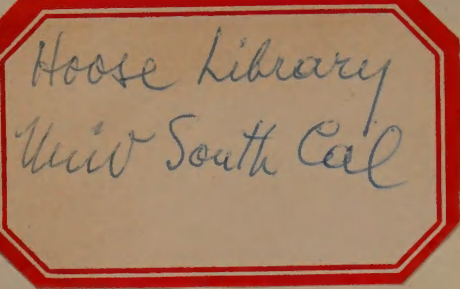 Hoose Library
Univ South Cal